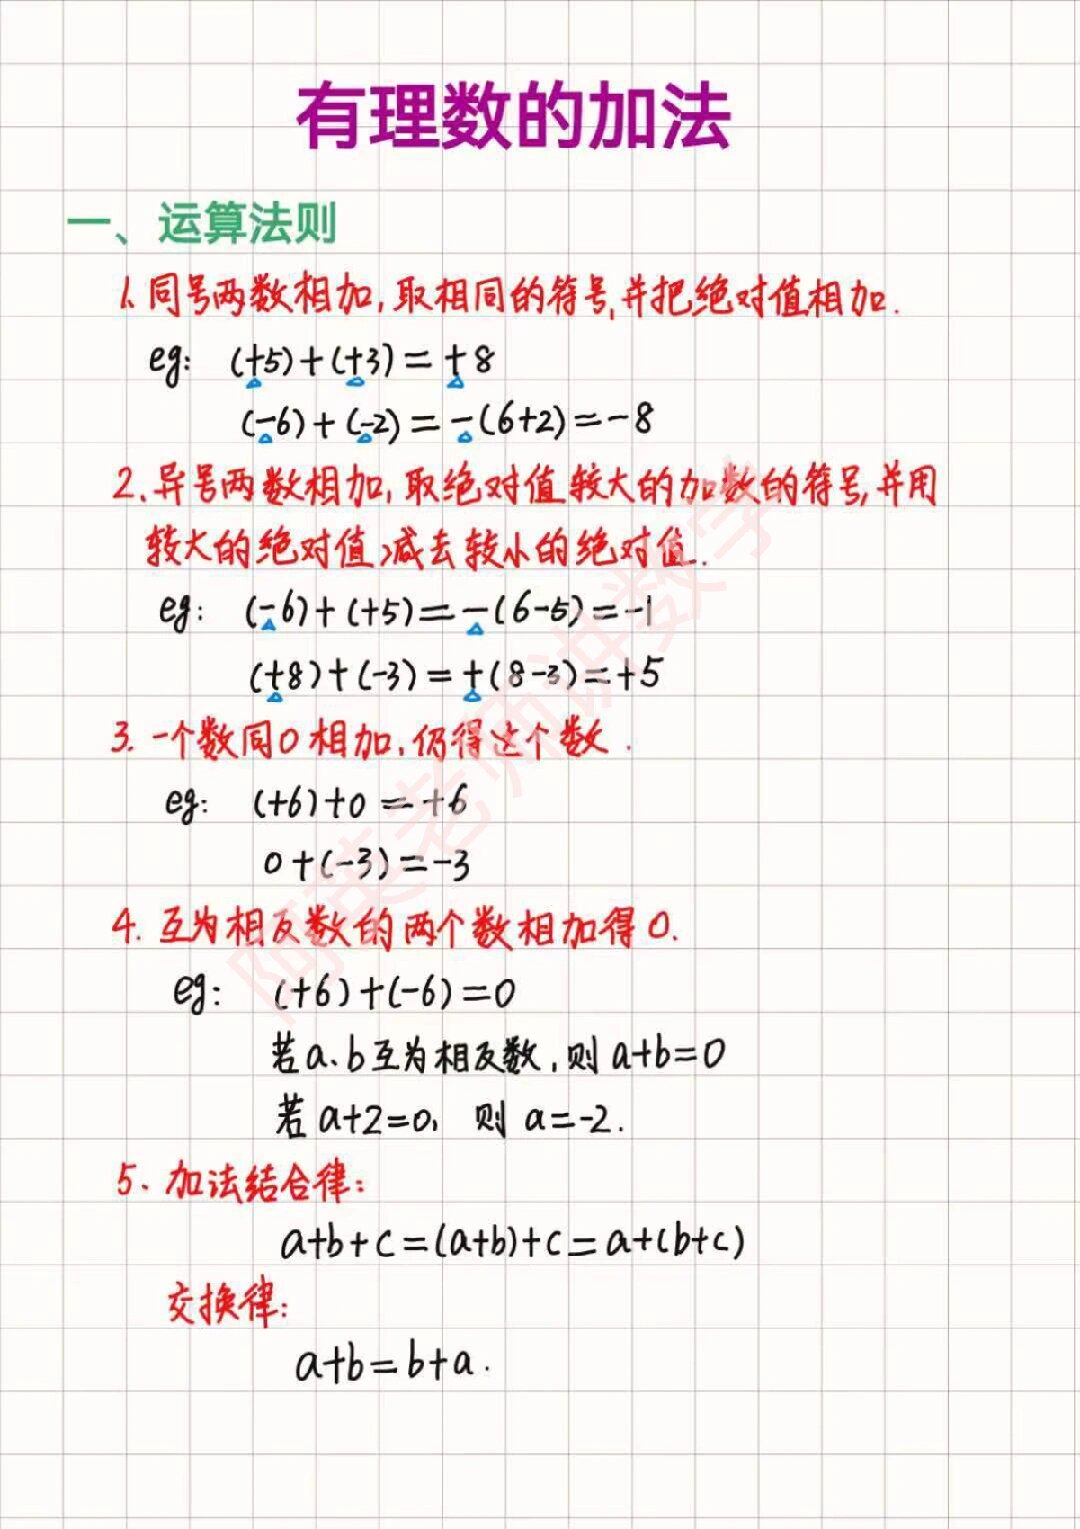 有理数的加法
一、运算法则
1.同号两数相加,取相同的符号,并把绝对值相加.
eg: (+5)+(+3)=+8
(-6)+(-2)=-(6+2)=-8
2.异号两数相加,取绝对值较大的加数的符号,并用
较大的绝对值减去较小的绝对值.
eg: (-6)+(+5)=-(6-5)=-1
(+8)+(-3)=+(8-3)=+5
3.一个数同0相加,仍得这个数.
eg: (+6)+0=+6
0+(-3)=-3
4.互为相反数的两个数相加得0.
eg: (+6)+(-6)=0
若a、b互为相反数,则a+b=0
若a+2=0,则a=-2.
5、加法结合律:
a+b+c=(a+b)+c=a+(b+c)
交换律:
a+b=b+a.
阿英老师讲数学